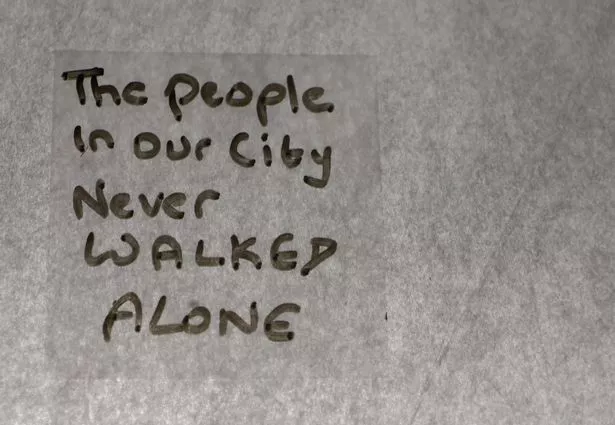 The people
In our City
Never
WALKED
ALONE